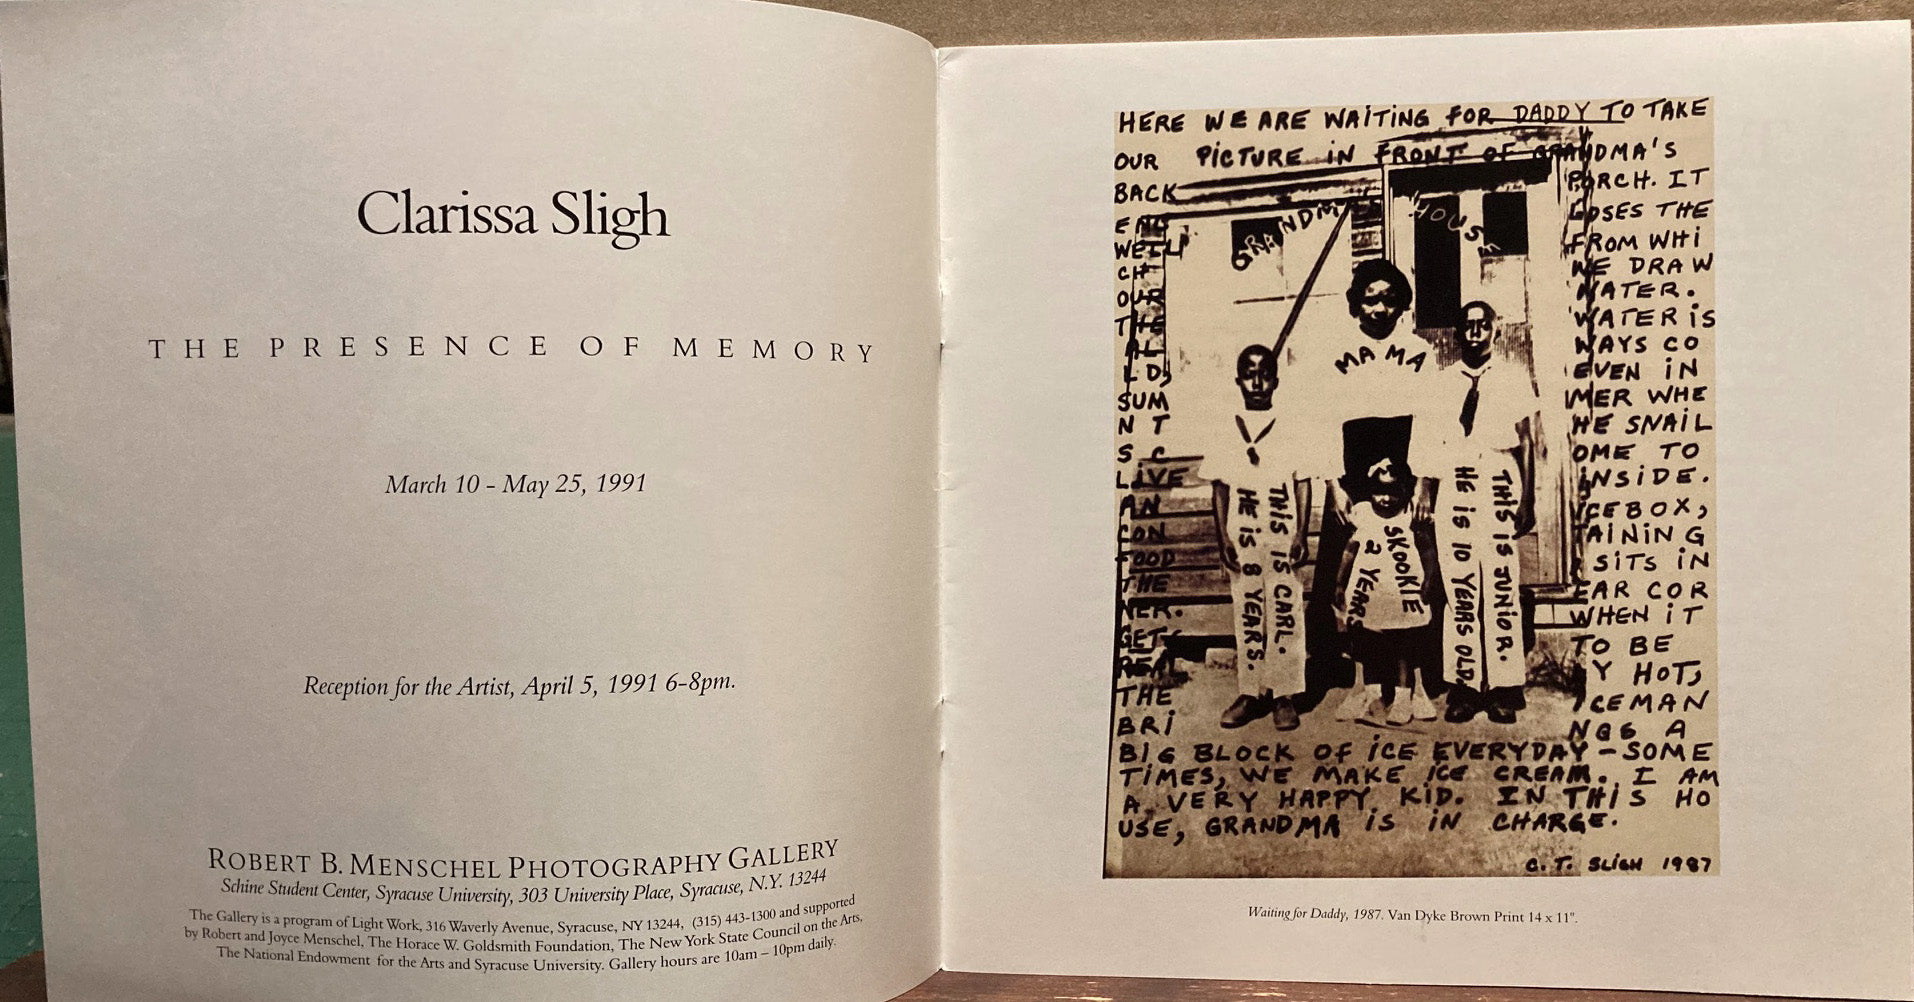 Clarissa Sligh
THE PRESENCE OF MEMORY
March 10 - May 25, 1991
Reception for the Artist, April 5, 1991 6-8pm.
ROBERT B. MENSCHEL PHOTOGRAPHY GALLERY
Schine Student Center, Syracuse University, 303 University Place, Syracuse, N.Y. 13244
The Gallery is a program of Light Work, 316 Waverly Avenue, Syracuse, NY 13244, (315) 443-1300 and supported
by Robert and Joyce Menschel, The Horace W. Goldsmith Foundation, The New York State Council on the Arts,
The National Endowment for the Arts and Syracuse University. Gallery hours are 10am – 10pm daily.
HERE WE ARE WAITING FOR DADDY TO TAKE
OUR PICTURE IN FRONT OF GRANDMA'S
BACK PORCH. IT
ENC LOSES THE
WELL FROM WHI
CH WE DRAW
OUR WATER.
THE WATER IS
AL WAYS CO
LD, EVEN IN
SUM MER WHE
N T HE SNAIL
S C OME TO
LIVE INSIDE.
AN ICEBOX,
CON TAINING
FOOD SITS IN
THE FAR COR
NER. WHEN IT
GETS TO BE
REAL Y HOT,
THE ICEMAN
BRI NGS A
BIG BLOCK OF ICE EVERYDAY – SOME
TIMES, WE MAKE ICE CREAM. I AM
A VERY HAPPY KID. IN THIS HO
USE, GRANDMA IS IN CHARGE.
C. T. SLIGH 1987
GRANDMA'S HOUSE
MAMA
THIS IS CARL.
HE IS 8 YEARS.
SKOOKIE
2 YEARS
THIS IS JUNIOR.
HE IS 10 YEARS OLD.
Waiting for Daddy, 1987. Van Dyke Brown Print 14 x 11".